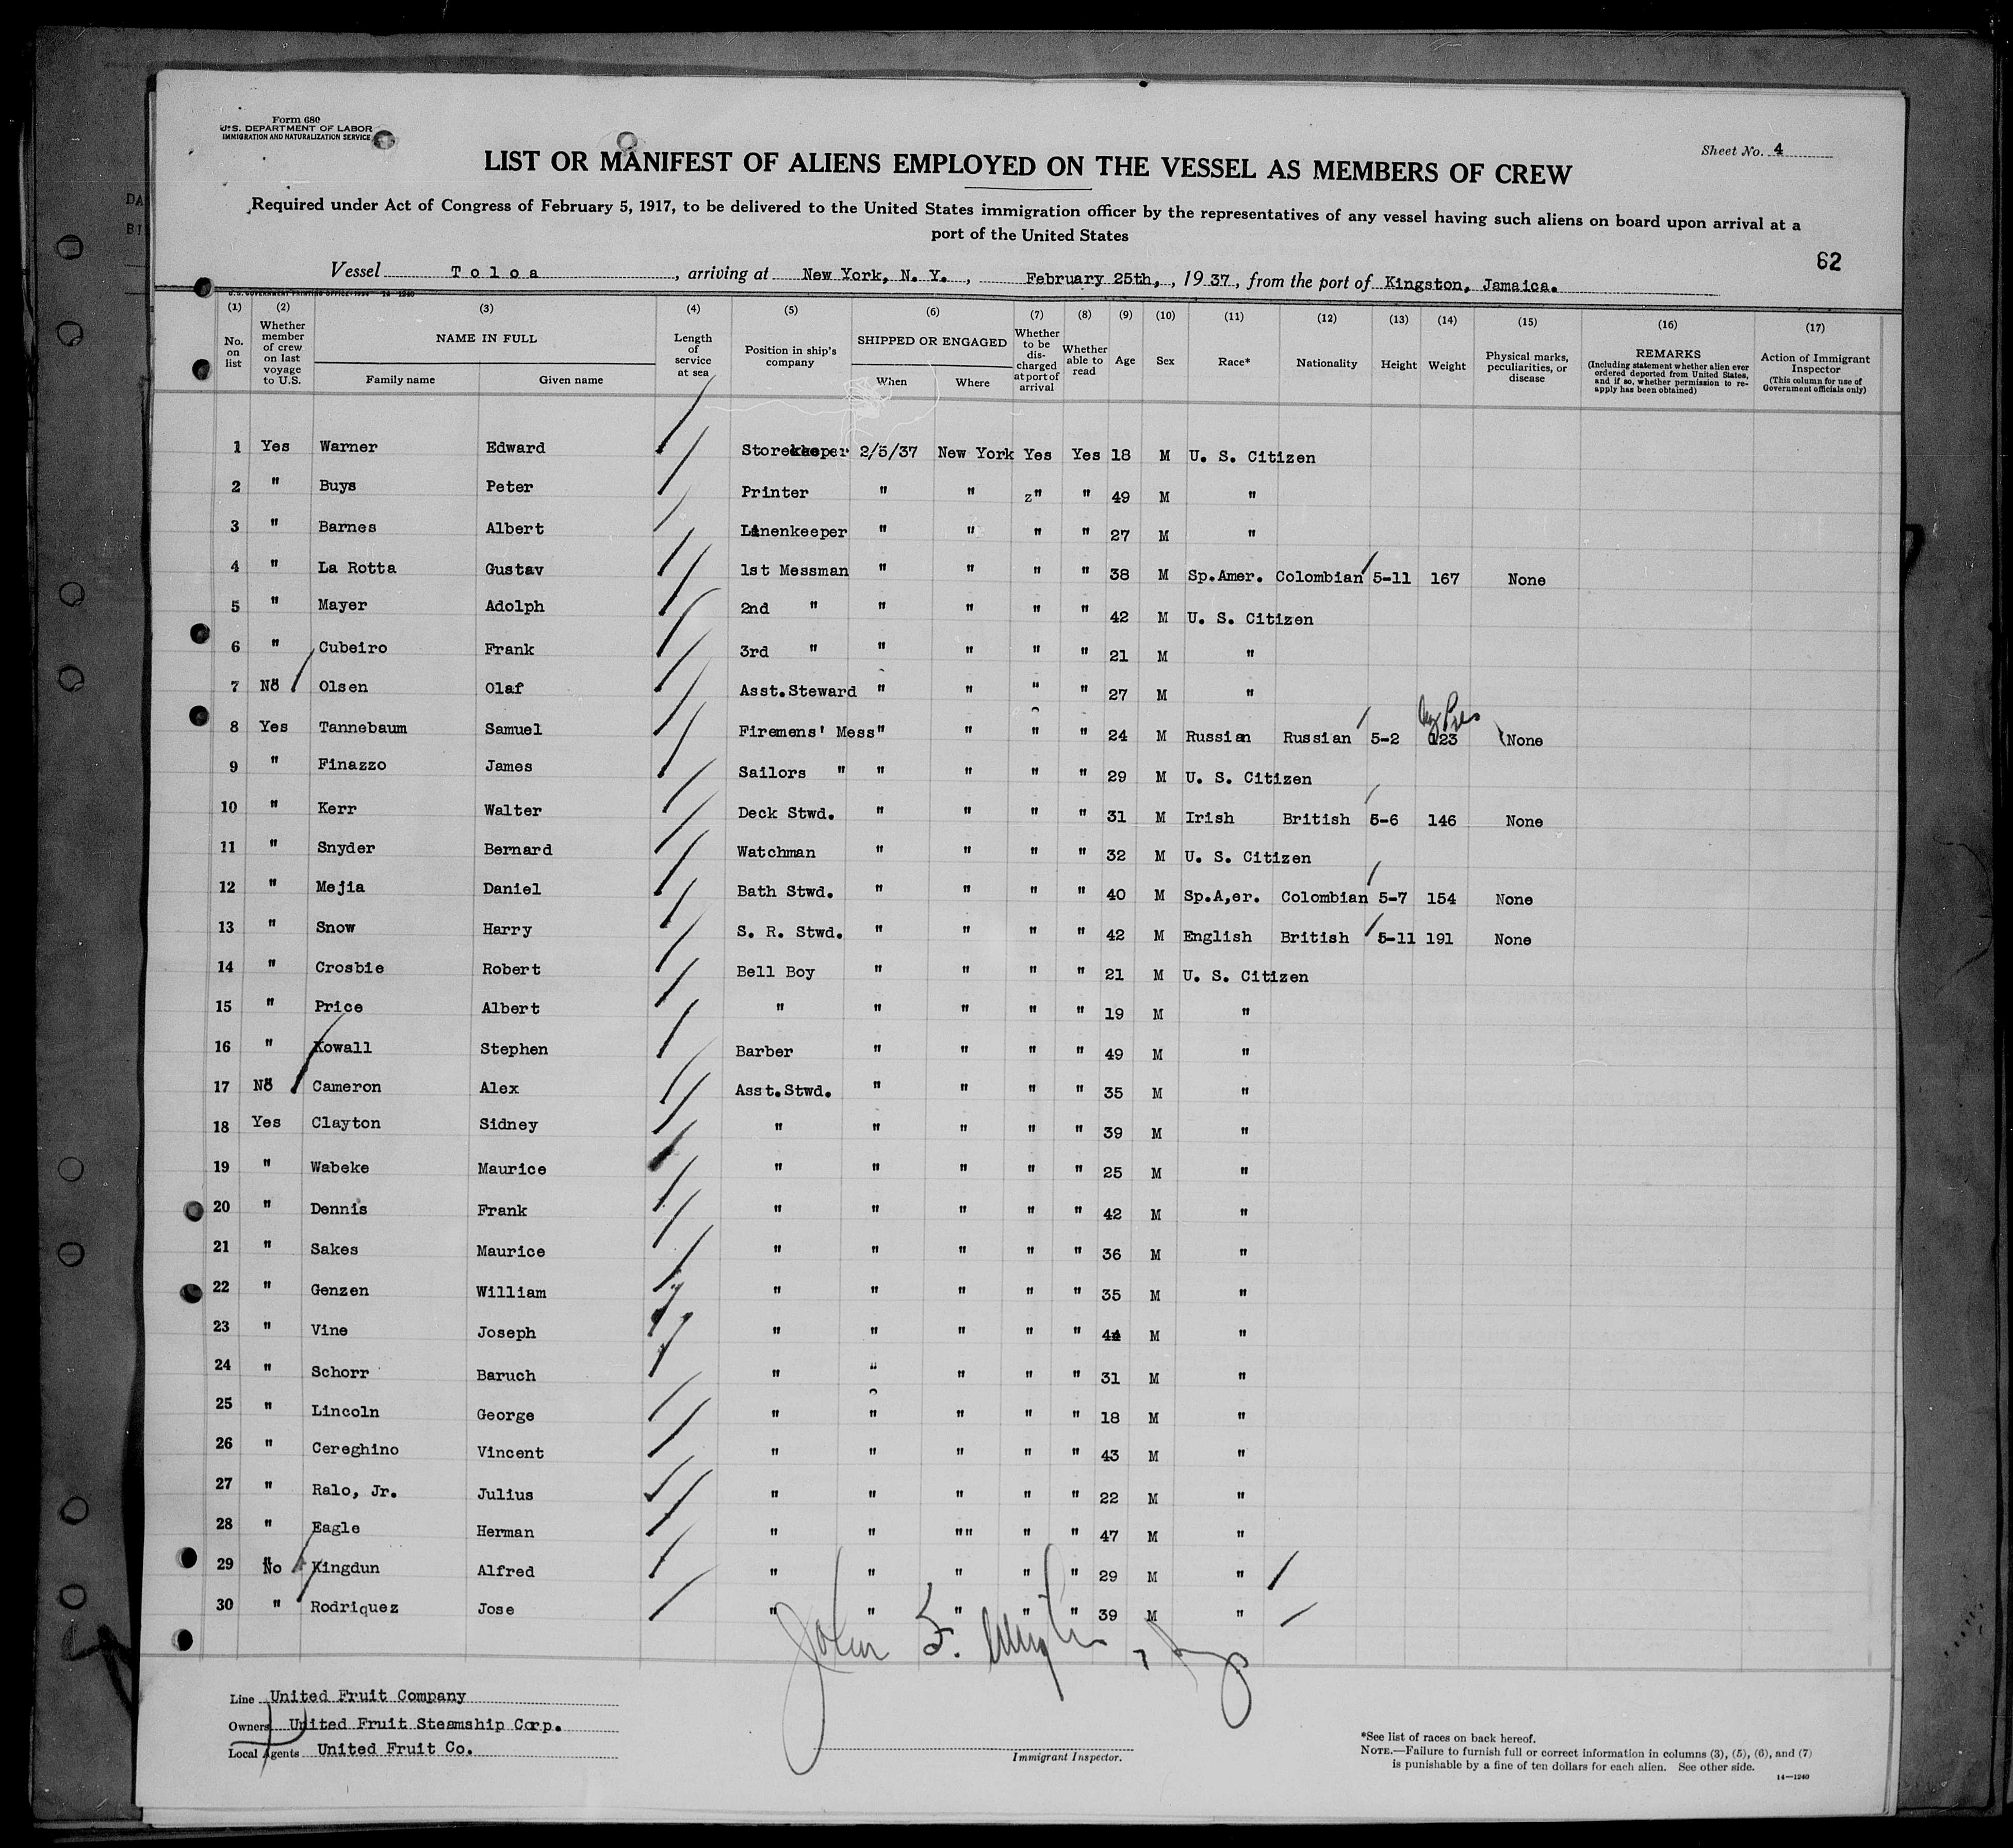 Form 680
U.S. DEPARTMENT OF LABOR
IMMIGRATION AND NATURALIZATION SERVICE
Sheet No. 4
LIST OR MANIFEST OF ALIENS EMPLOYED ON THE VESSEL AS MEMBERS OF CREW
Required under Act of Congress of February 5, 1917, to be delivered to the United States immigration officer by the representatives of any vessel having such aliens on board upon arrival at a
port of the United States
62
Vessel Toloa, arriving at New York, N. Y., February 25th, , 1937, from the port of Kingston, Jamaica.
U.S. GOVERNMENT PRINTING OFFICE 14-1240
(1) (2) (3) (4) (5) (6) (7) (8) (9) (10) (11) (12) (13) (14) (15) (16) (17)
No. on list
Whether member of crew on last voyage to U.S.
NAME IN FULL
Family name Given name
Length of service at sea
Position in ship's company
SHIPPED OR ENGAGED
When Where
Whether to be discharged at port of arrival
Whether able to read
Age Sex Race* Nationality Height Weight
Physical marks, peculiarities, or disease
REMARKS
(Including statement whether alien ever ordered deported from United States, and if so, whether permission to re-apply has been obtained)
Action of Immigrant Inspector
(This column for use of Government officials only)
1 Yes Warner Edward Storekeeper 2/5/37 New York Yes Yes 18 M U. S. Citizen
2 " Buys Peter Printer " " z" " 49 M "
3 " Barnes Albert Linenkeeper " " " " 27 M "
4 " La Rotta Gustav 1st Messman " " " " 38 M Sp.Amer. Colombian 5-11 167 None
5 " Mayer Adolph 2nd " " " " " 42 M U. S. Citizen
6 " Cubeiro Frank 3rd " " " " " 21 M "
7 No Olsen Olaf Asst.Steward " " " " 27 M "
8 Yes Tannebaum Samuel Firemens' Mess" " " " 24 M Russian Russian 5-2 123 None
9 " Finazzo James Sailors " " " " " 29 M U. S. Citizen
10 " Kerr Walter Deck Stwd. " " " " 31 M Irish British 5-6 146 None
11 " Snyder Bernard Watchman " " " " 32 M U. S. Citizen
12 " Mejia Daniel Bath Stwd. " " " " 40 M Sp.A,er. Colombian 5-7 154 None
13 " Snow Harry S. R. Stwd. " " " " 42 M English British 5-11 191 None
14 " Crosbie Robert Bell Boy " " " " 21 M U. S. Citizen
15 " Price Albert " " " " " 19 M "
16 " Kowall Stephen Barber " " " " 49 M "
17 No Cameron Alex Asst.Stwd. " " " " 35 M "
18 Yes Clayton Sidney " " " " " 39 M "
19 " Wabeke Maurice " " " " " 25 M "
20 " Dennis Frank " " " " " 42 M "
21 " Sakes Maurice " " " " " 36 M "
22 " Genzen William " " " " " 35 M "
23 " Vine Joseph " " " " " 44 M "
24 " Schorr Baruch " " " " " 31 M "
25 " Lincoln George " " " " " 18 M "
26 " Cereghino Vincent " " " " " 43 M "
27 " Ralo, Jr. Julius " " " " " 22 M "
28 " Eagle Herman " " "" " " 47 M "
29 No Kingdun Alfred " " " " " 29 M "
30 " Rodriquez Jose " " " " " 39 M "
John F.
Line United Fruit Company
Owners United Fruit Steamship Corp.
Local Agents United Fruit Co.
Immigrant Inspector.
*See list of races on back hereof.
NOTE.—Failure to furnish full or correct information in columns (3), (5), (6), and (7)
is punishable by a fine of ten dollars for each alien. See other side.
14—1240